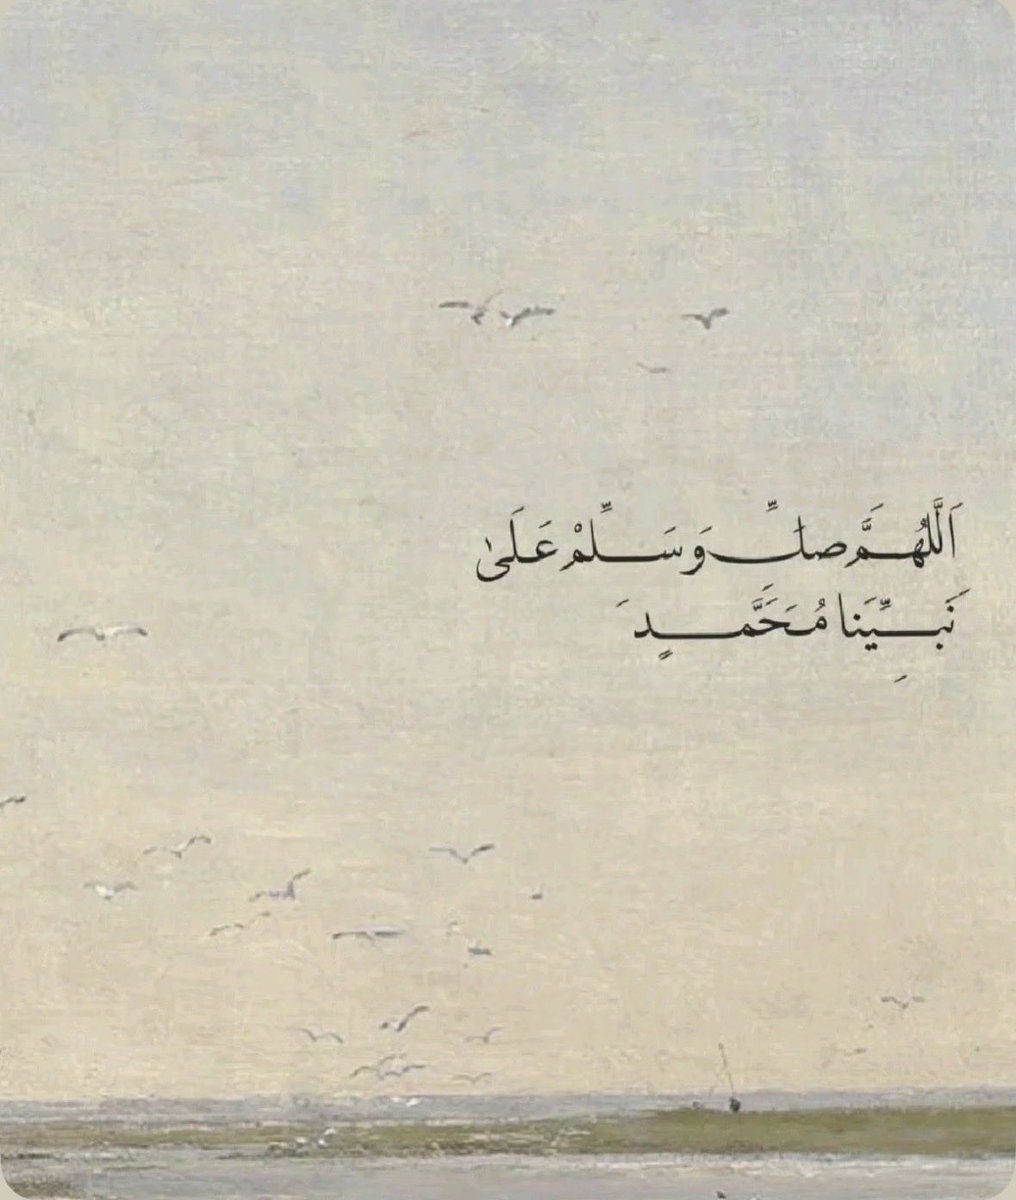 اَللَّهُمَّ صلِّ وَسَلِّمْ عَلَىٰ
نَبِيِّنَا مُحَمَّدٍ